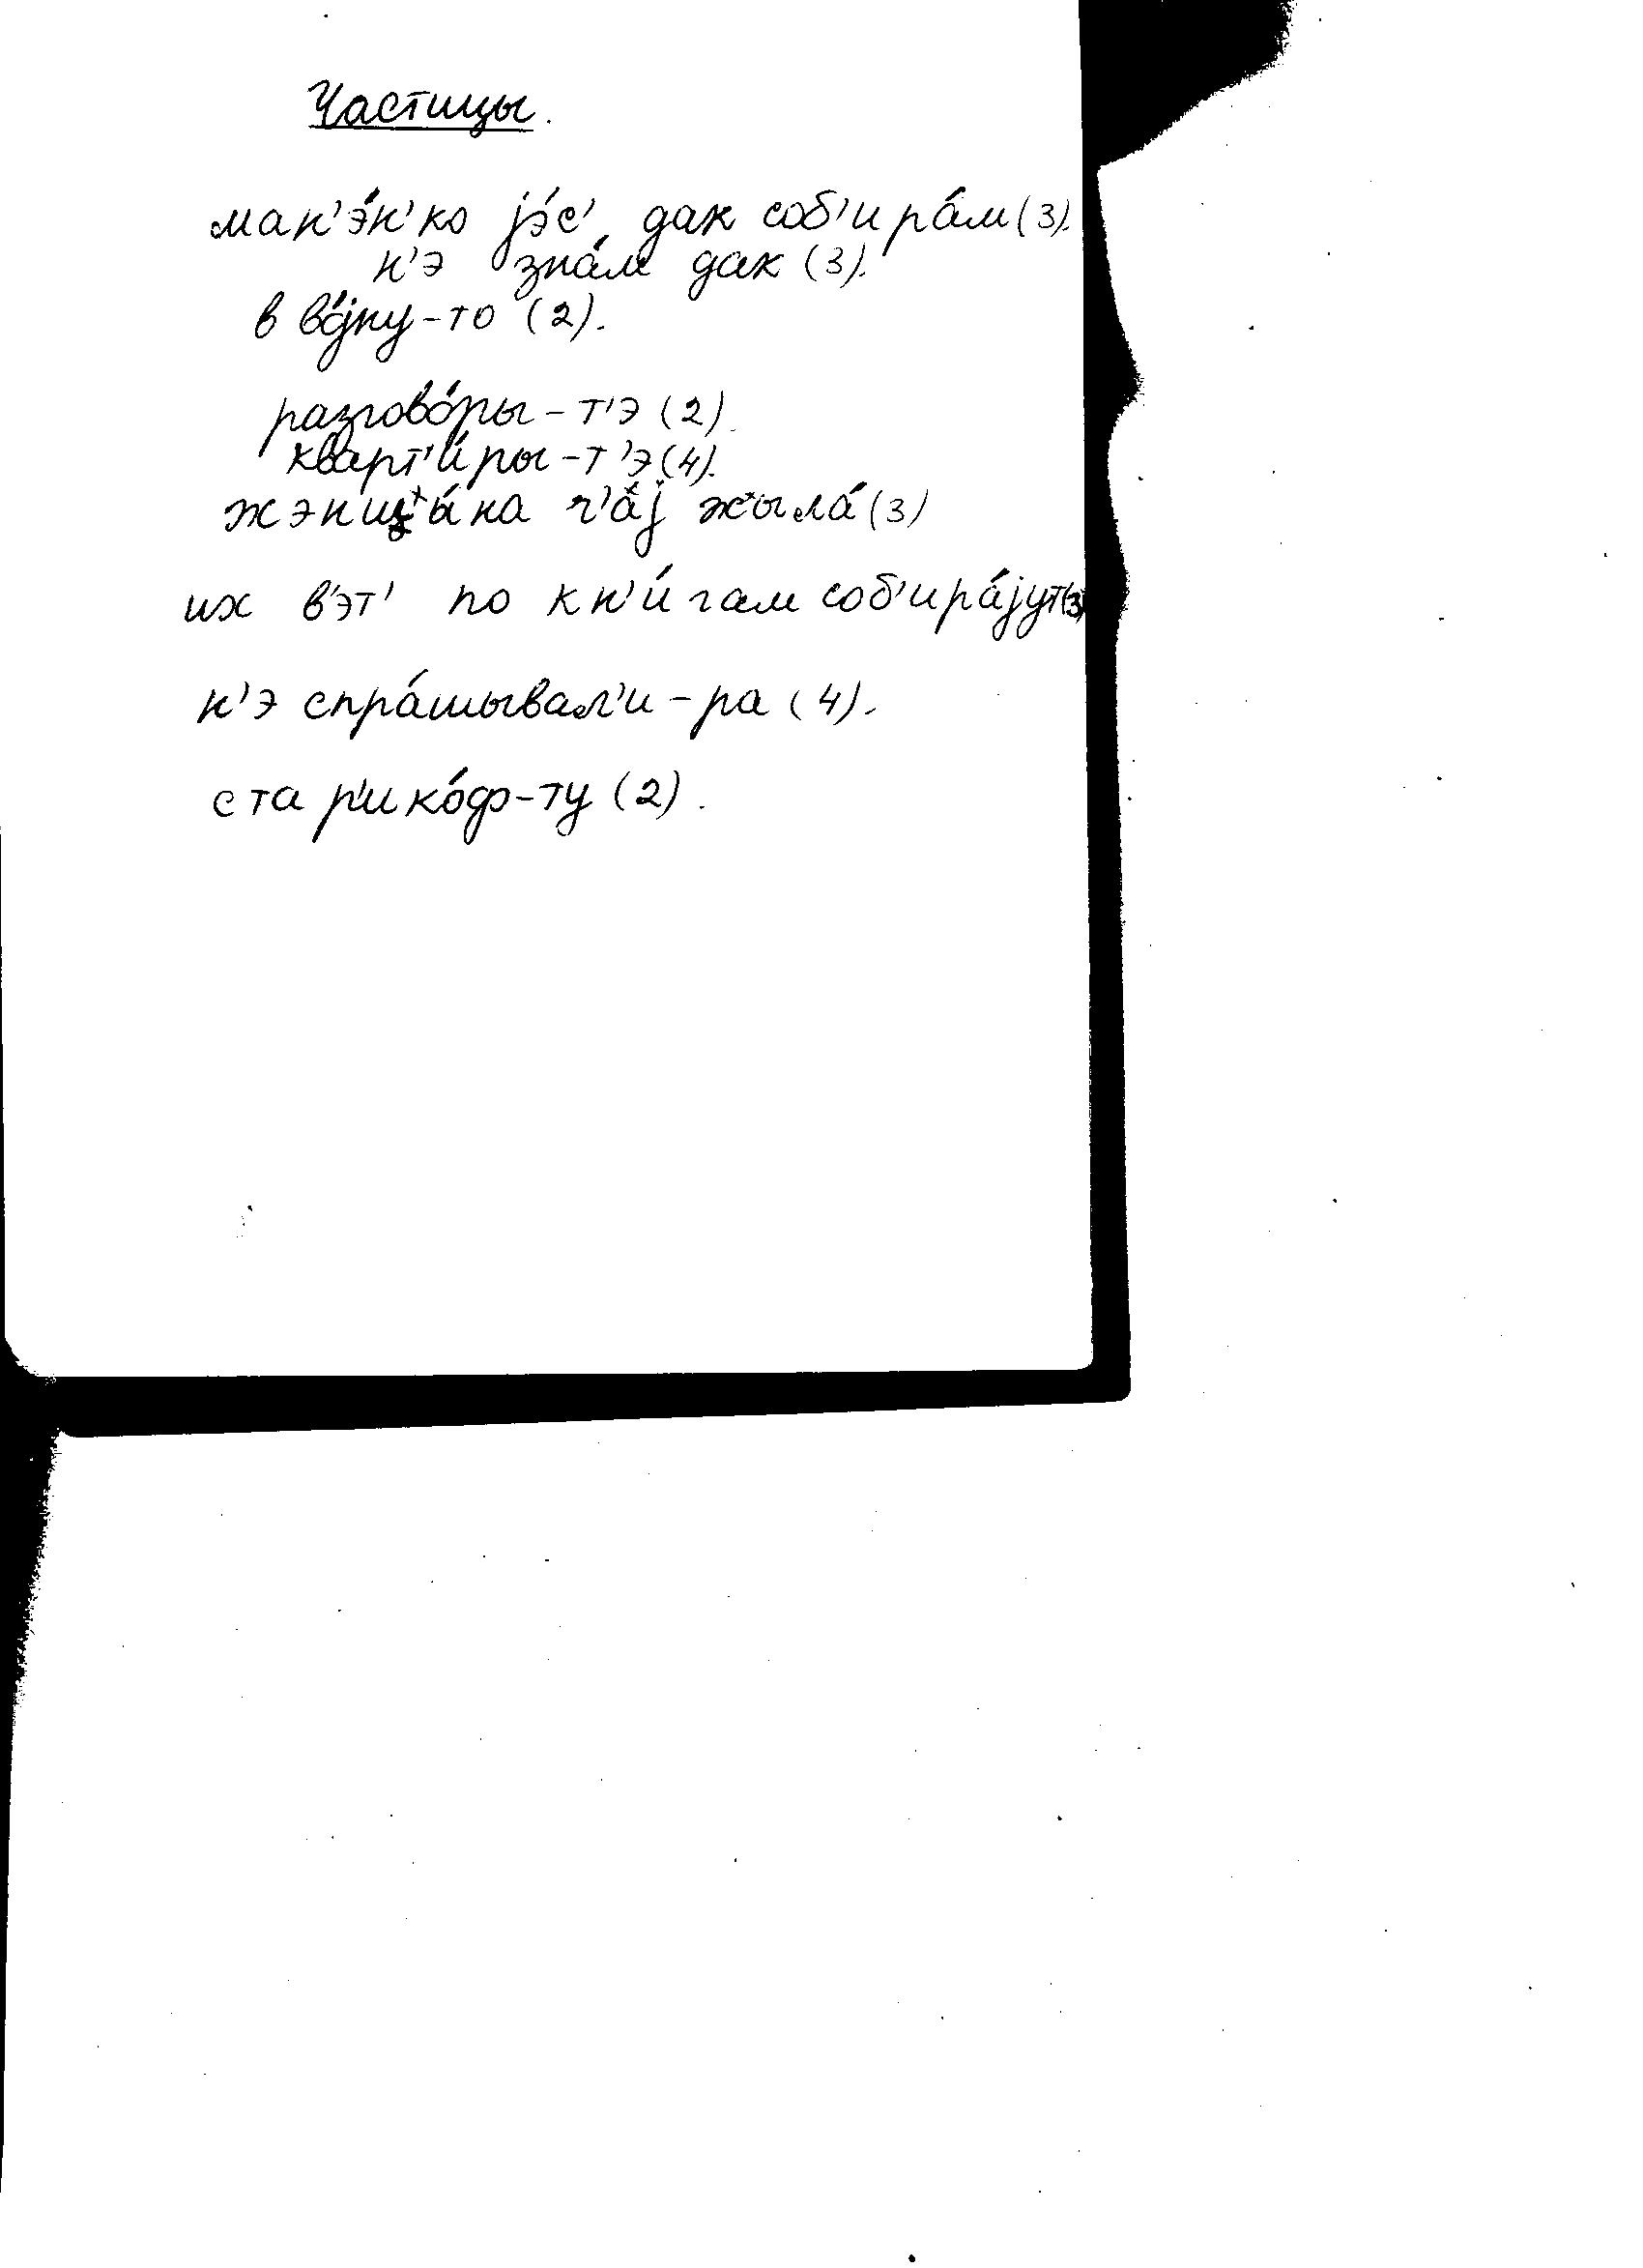 Частицы.
ман'э́н'ко jэ́с' дак соб'ира́м (3).
н'э зна́м дак (3).
в во́jну-то (2).
разгово́ры-т'э (2).
кварт'и́ры-т'э (4).
ч'а́j жыла́ (3)
их в'эт' по кн'и́гам соб'ира́jут (3)
н'э спра́шывал'и-ра (4).
стар'ико́ф-ту (2).